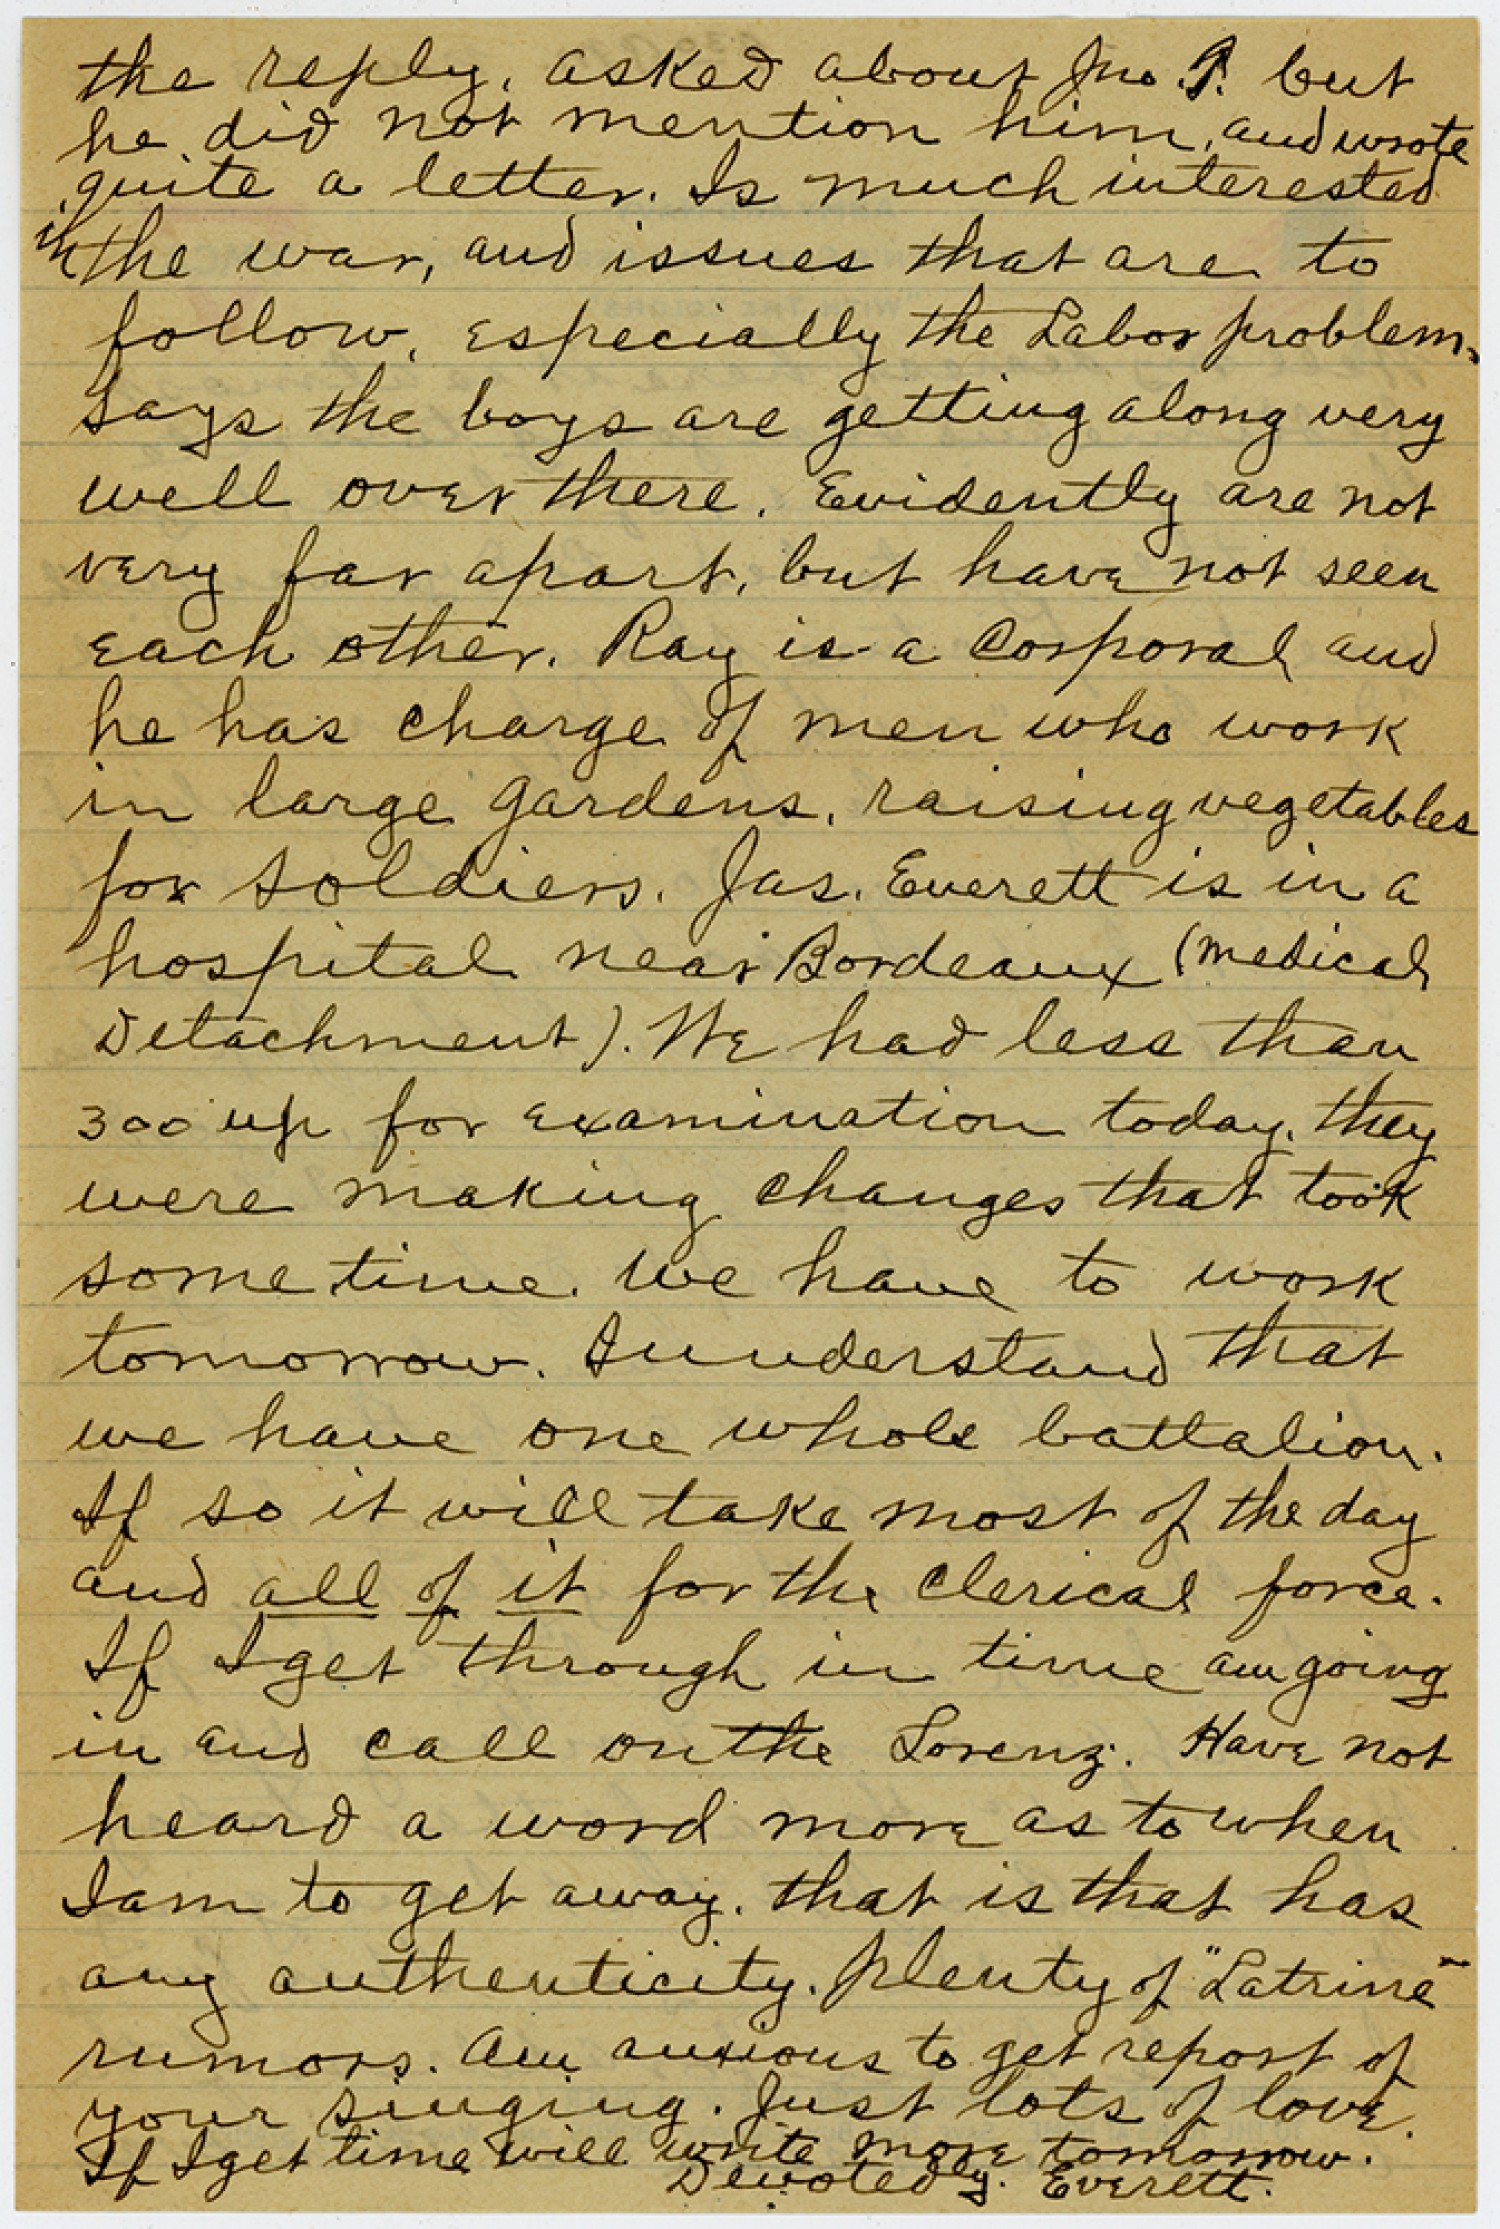 the reply, asked about Jno. P. but
he did not mention him, and wrote
quite a letter. Is much interested
in the war, and issues that are to
follow, especially the Labor problem.
Says the boys are getting along very
well over there. Evidently are not
very far apart, but have not seen
each other. Ray is a Corporal and
he has charge of men who work
in large gardens, raising vegetables
for soldiers. Jas. Everett is in a
hospital near Bordeaux (Medical
Detachment). We had less than
300 up for examination today, they
were making changes that took
some time. We have to work
tomorrow. I understand that
we have one whole battalion.
If so it will take most of the day
and all of it for the clerical force.
If I get through in time am going
in and call on the Lorenz. Have not
heard a word more as to when
I am to get away. that is that has
any authenticity. Plenty of "Latrine"
rumors. Am anxious to get report of
your singing. Just lots of love.
If I get time will write more tomorrow.
Devotedly. Everett.